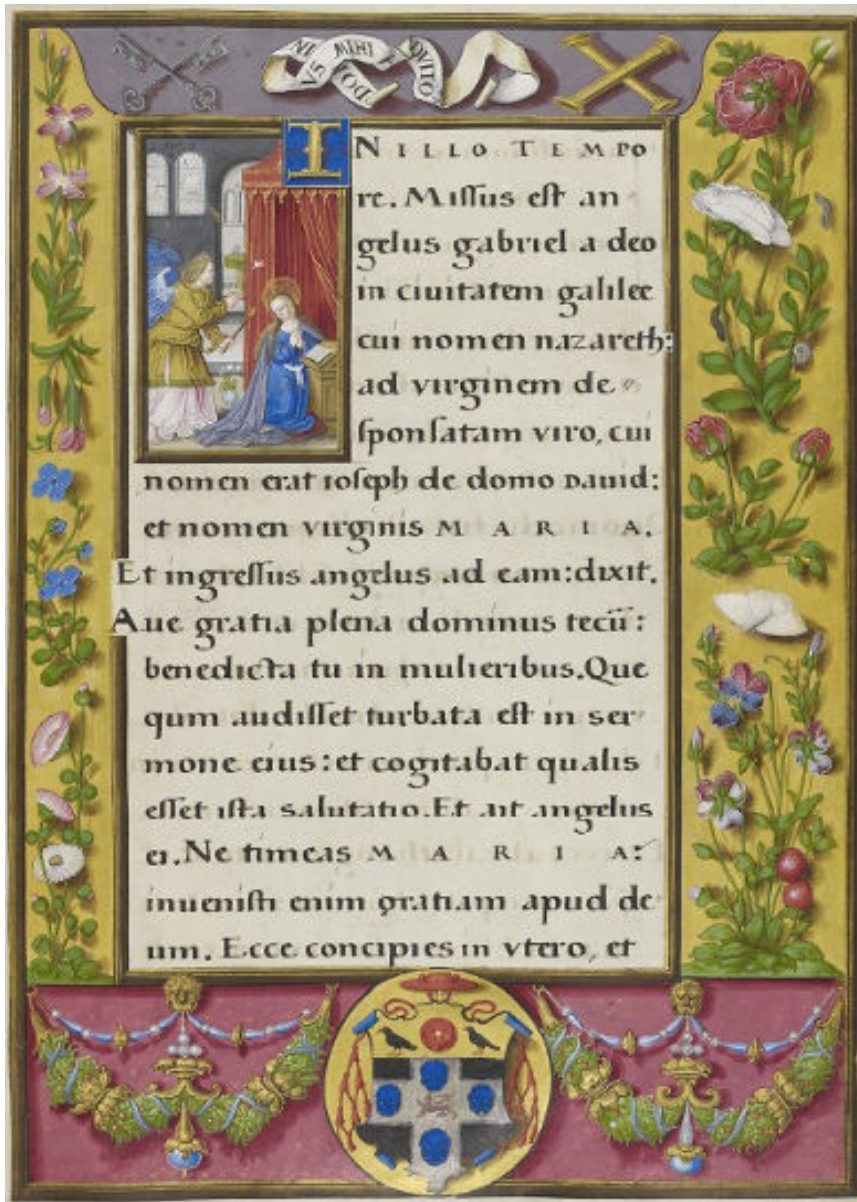 IN ILLO TEMPO
re. Miſſus eſt an
gelus gabriel a deo
in ciuitatem galilee
cui nomen nazareth:
ad virginem de=
ſponſatam viro, cui
nomen erat ioſeph de domo Dauid:
et nomen virginis MARIA.
Et ingreſſus angelus ad eam: dixit.
Aue gratia plena dominus tecū:
benedicta tu in mulieribus. Que
qum audiſſet turbata eſt in ser-
mone eius: et cogitabat qualis
eſſet iſta salutatio. Et ait angelus
ei. Ne timeas MARIA:
inueniſti enim gratiam apud de-
um. Ecce concipies in vtero, et